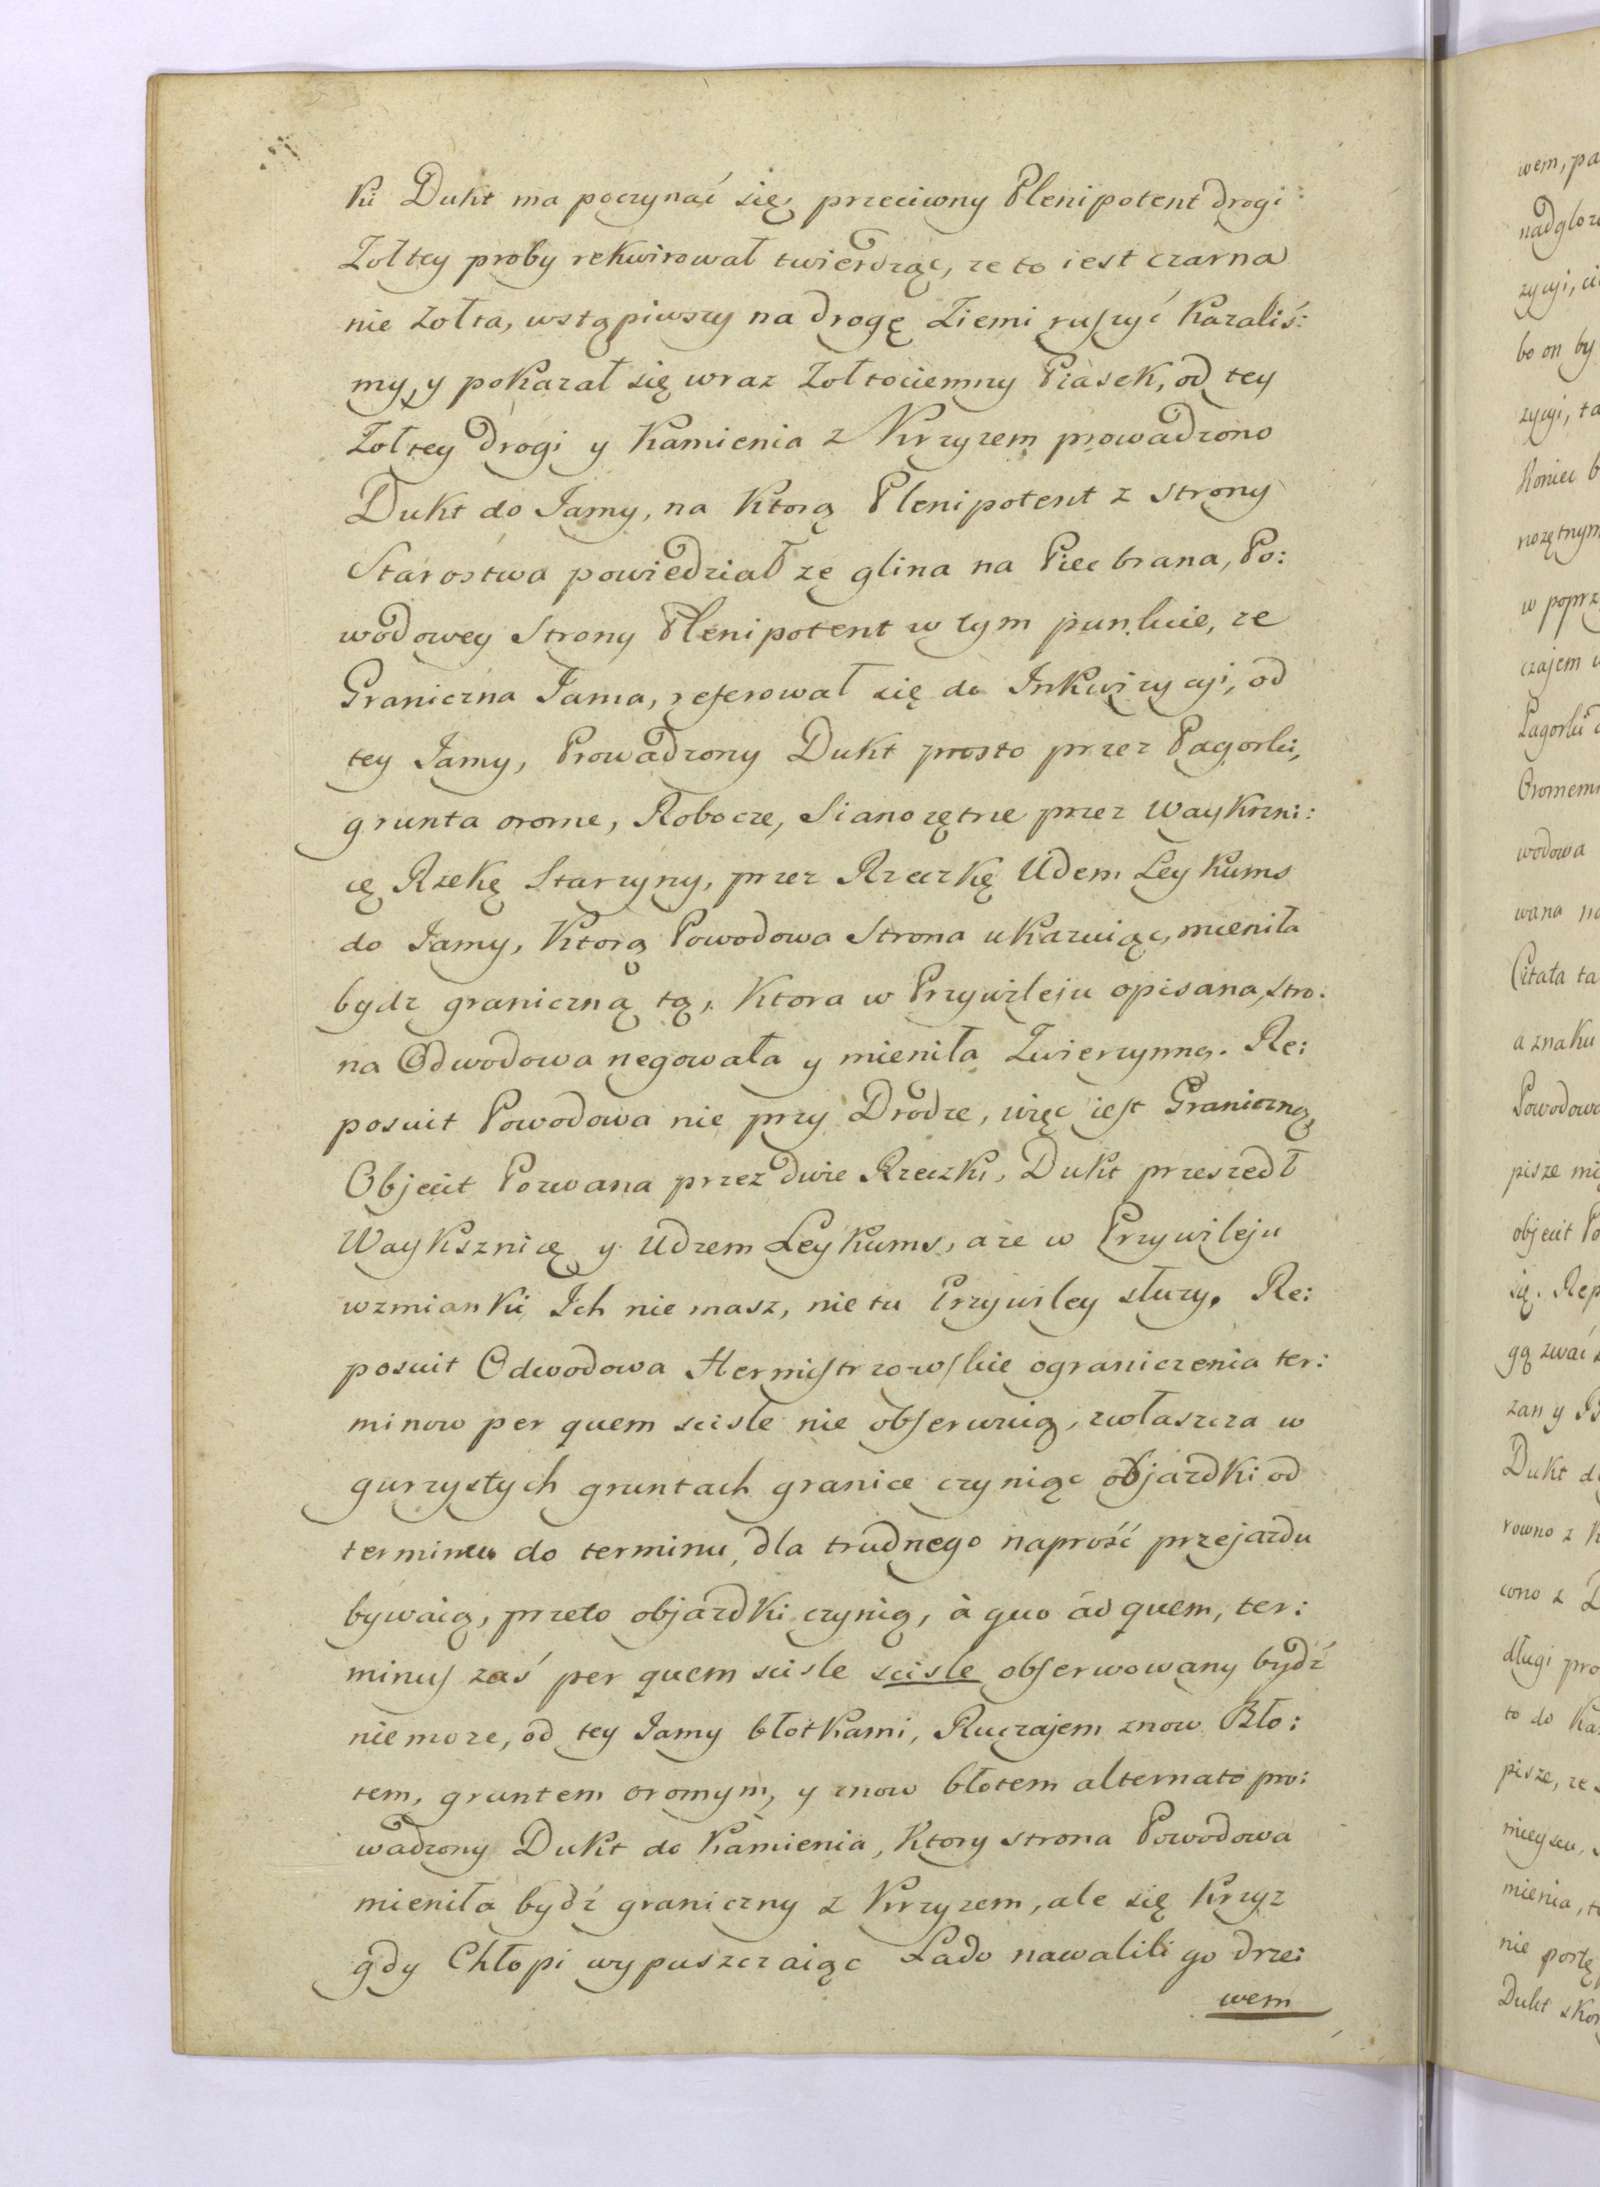 ki Dukt ma poczynać się, przeciwny Plenipotent drogi
Zołtey proby rekwirował twierdząc, ze to iest czarna
nie Zołta, wstąpiwszy na drogę Ziemi ruszyć kazaliś:
my, y pokazał się wraz Zołtociemny Piasek, od tey
Zołtey drogi y Kamienia z Krzyzem prowadzono
Dukt do Jamy, na Ktorą Plenipotent z strony
Starostwa powiedział ze glina na Piec brana, Po:
wodowey Strony Plenipotent w tym punkcie, ze
Graniczna Jama, referował się do Inkwizycyi, od
tey Jamy, Prowadzony Dukt prosto przez Pagorki,
grunta orome, Robocze, Sianozętne przez Waykszni:
cę Rzekę Starzyny, przez Rzeczkę Udem Leykums
do Jamy, Ktorą Powodowa Strona ukazuiąc, mieniła
bydz graniczną tą, Ktora w Przywileiu opisana, stro:
na Odwodowa negowała y mieniła Zwierzynną. Re:
posuit Powodowa nie przy Drodze, więc iest Graniczną
Objecit Pozwana przez dwie Rzeczki, Dukt przeszedł
Wayksznicę y Udzem Leykums, aze w Przywileju
wzmianki Ich nie masz, nie tu Przywiley słuzy. Re:
posuit Odwodowa Hermistrzowskie ograniczenia ter:
minow per quem scisle nie obserwuią, zwłaszcza w
gurzystych gruntach granice czyniąc objazdki od
terminu do terminu, dla trudnego naprość przejazdu
bywaią, przeto objazdki czynią, à quo ad quem, ter:
minus zaś per quem scisle scisle obserwowany bydź
nie moze, od tey Jamy błotkami, Ruczajem znow Bło:
tem, gruntem oromym, y znow błotem alternato pro:
wadzony Dukt do Kamienia, Ktory strona Powodowa
mieniła bydź graniczny z Krzyzem, ale się Krzyz
gdy Chłopi wypuszczaiąc Lado nawalili go drze:
wem
wem, pa
zycyi,
bo on by
zycyi, ta
Koniec b
w poprz
czajem
Pagorki
Oromem
wodowa
wana
Citata ta
a znaku
Powodowa
pisze
objecit Po
się. Rep
gą zwać
zan y
Dukt
rowno z
cono z
długi pro
to do Ka
pisze, ze
mieyscu,
mienia,
nie
Dukt